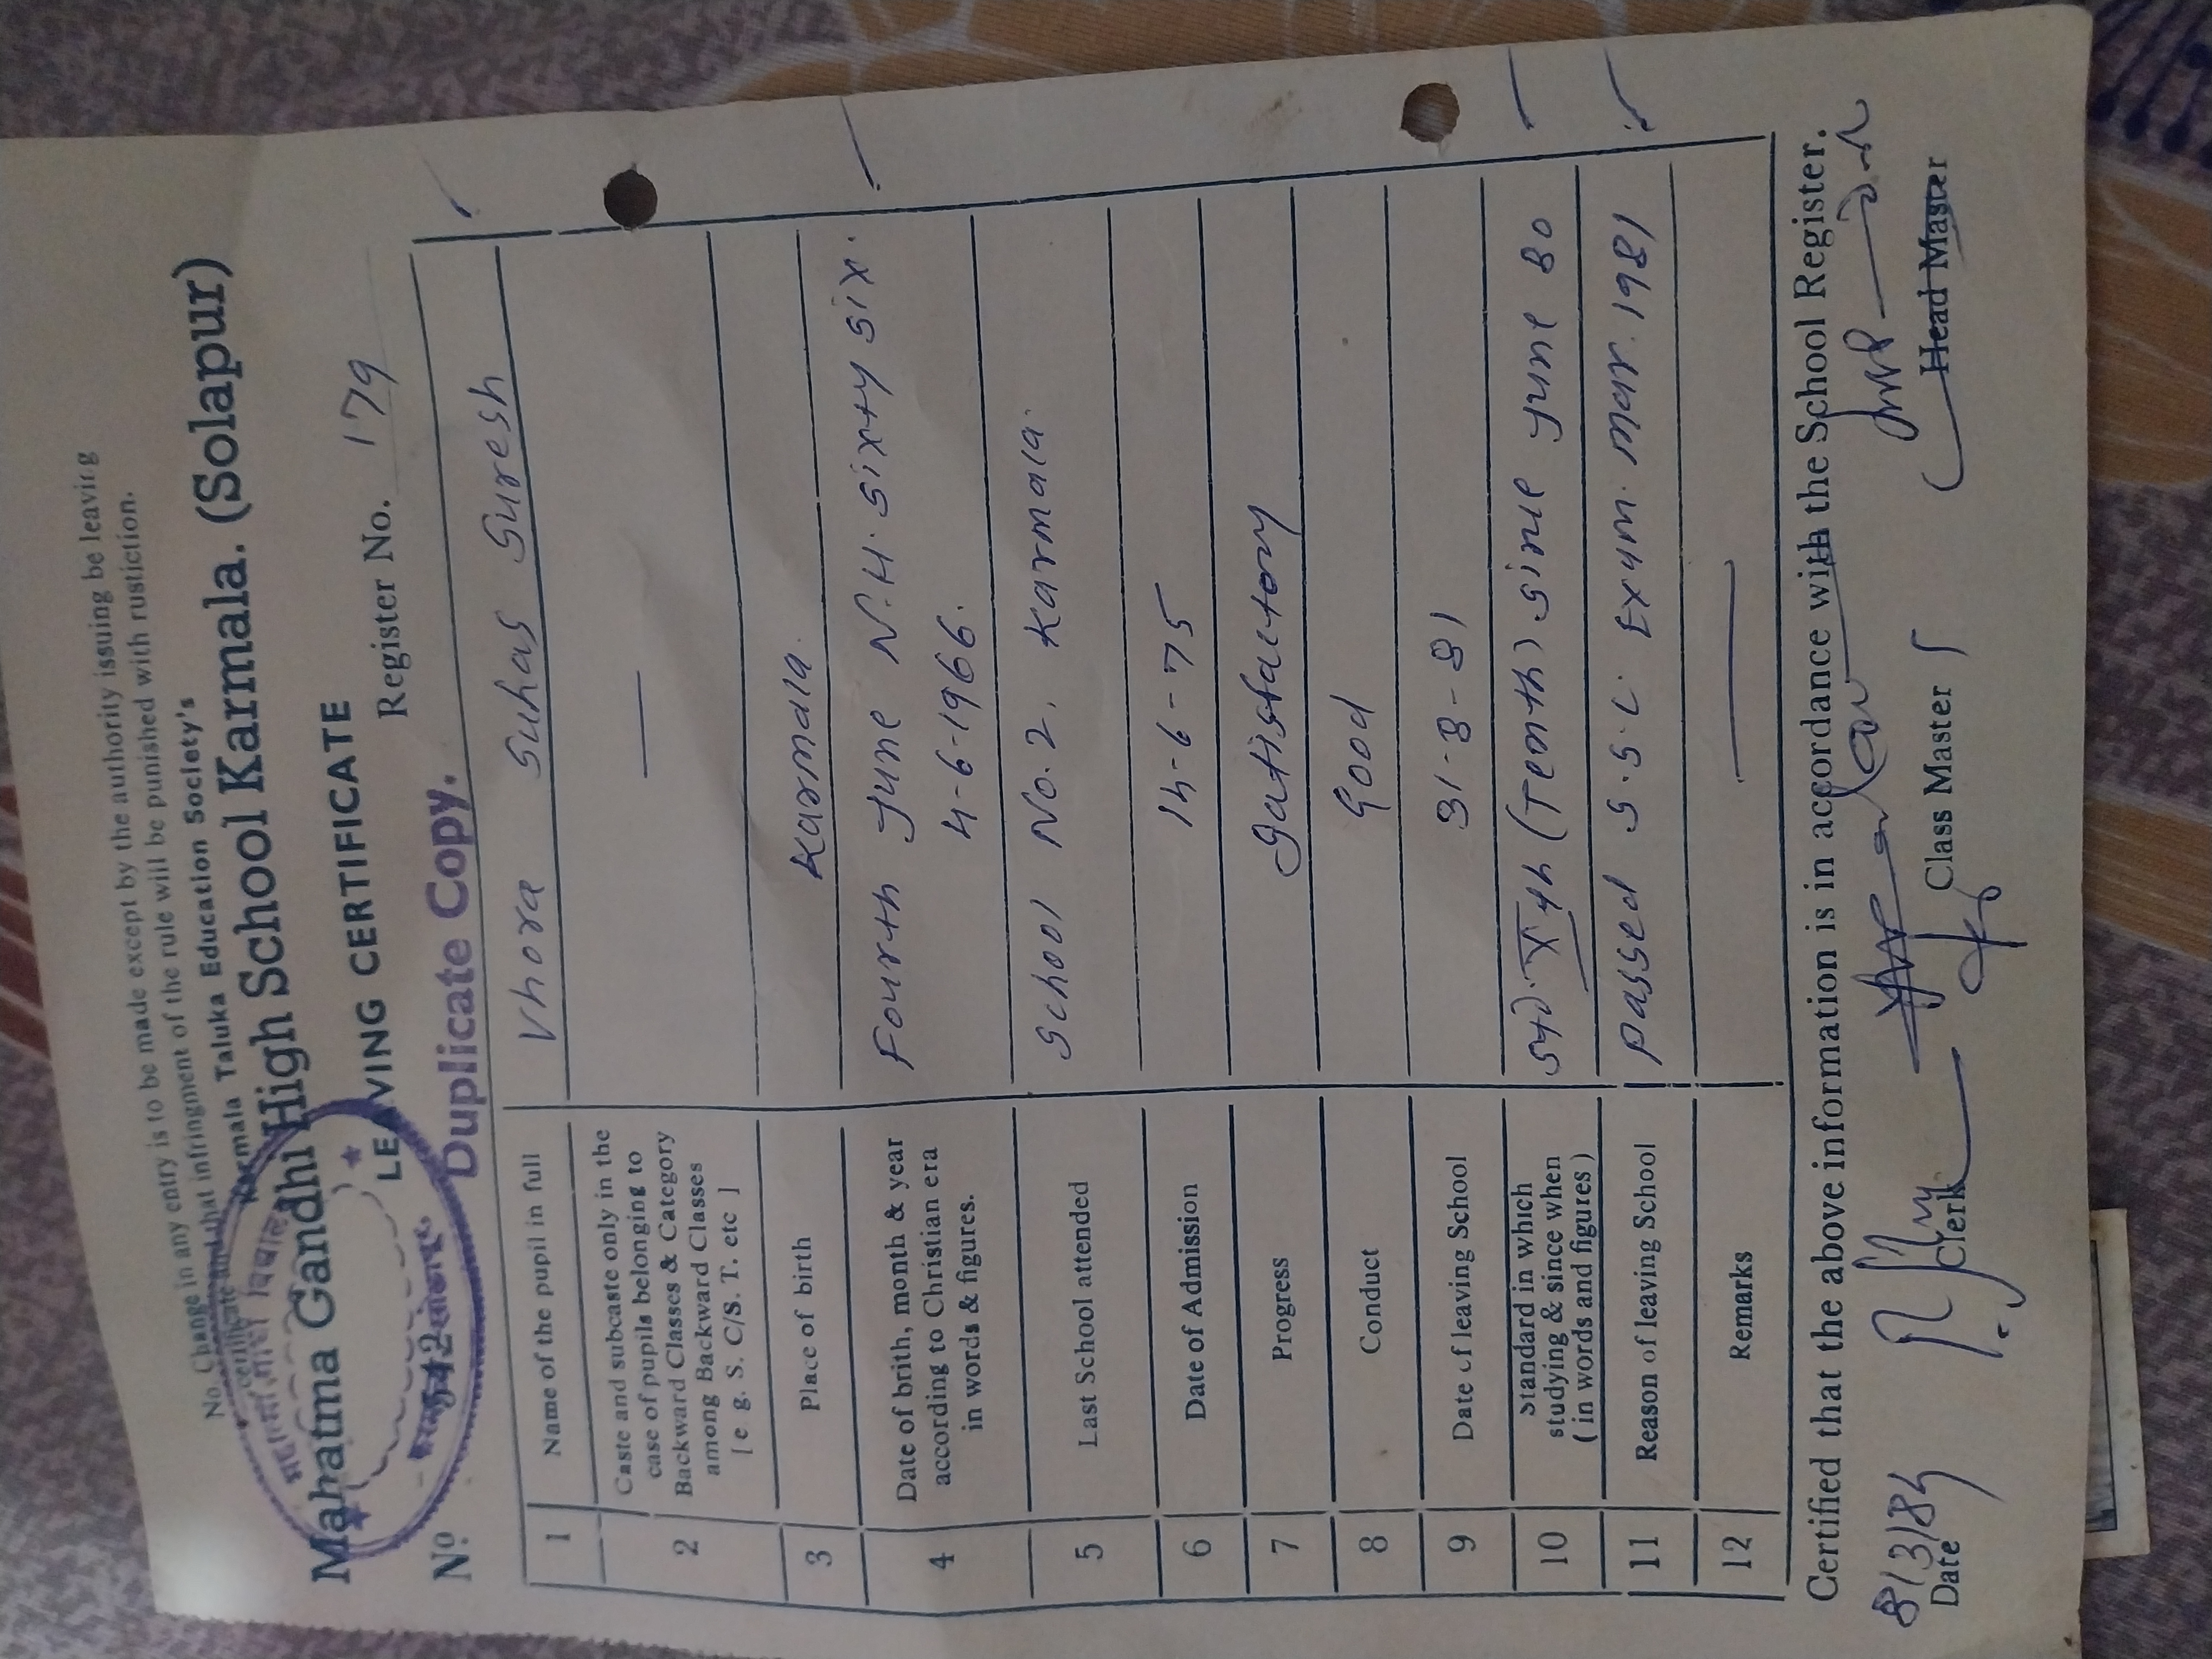 No Change in any entry is to be made except by the authority issuing be leaving
certificate and that infringment of the rule will be punished with rustiction.
Karmala Taluka Education Society's
Mahatma Gandhi High School Karmala. (Solapur)
LEAVING CERTIFICATE
Register No. 179
Nº 542 Duplicate Copy.
1 Name of the pupil in full Vhora Suhas Suresh
2 Caste and subcaste only in the
case of pupils belonging to
Backward Classes & Category
among Backward Classes
[ e g. S. C/S. T. etc ] —
3 Place of birth Karmala.
4 Date of brith, month & year
according to Christian era
in words & figures.
Fourth June N.H. sixty six.
4-6-1966.
5 Last School attended School No. 2. Karmala.
6 Date of Admission 14-6-75
7 Progress Satisfactory
8 Conduct Good
9 Date of leaving School 31-8-81
10 Standard in which
studying & since when
( in words and figures )
std. Xth (Tenth) since June 80
11 Reason of leaving School Passed S.S.C. Exam. Mar. 1981
12 Remarks —
Certified that the above information is in accordance with the School Register.
8/3/84
Date Clerk Class Master Head Master